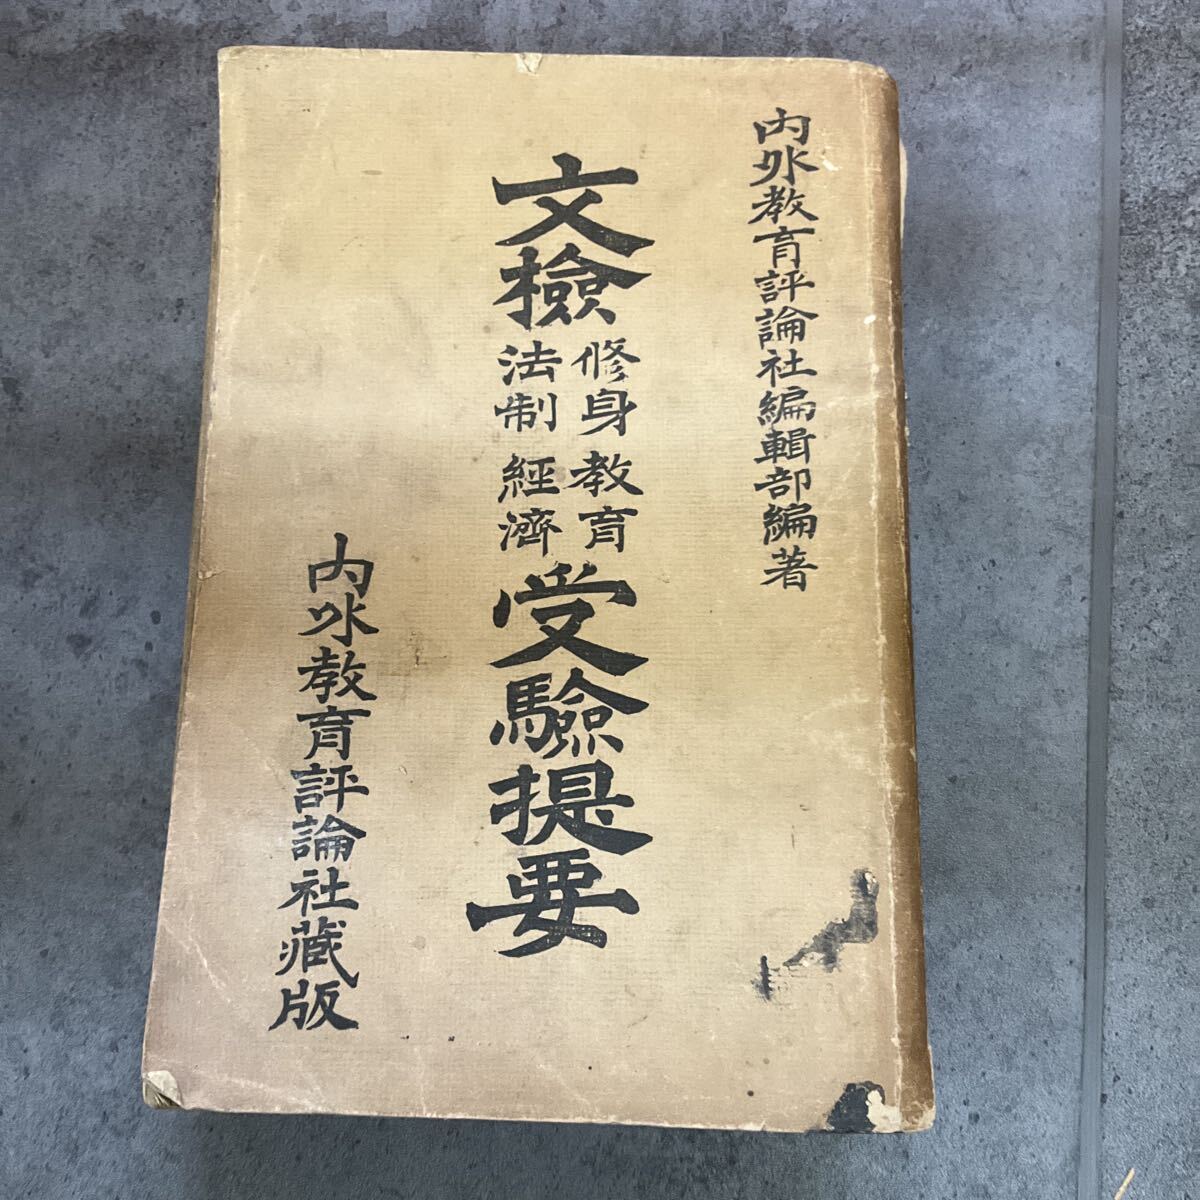 內外教育評論社編輯部編著
文檢修身教育法制經濟受驗提要
內外教育評論社藏版